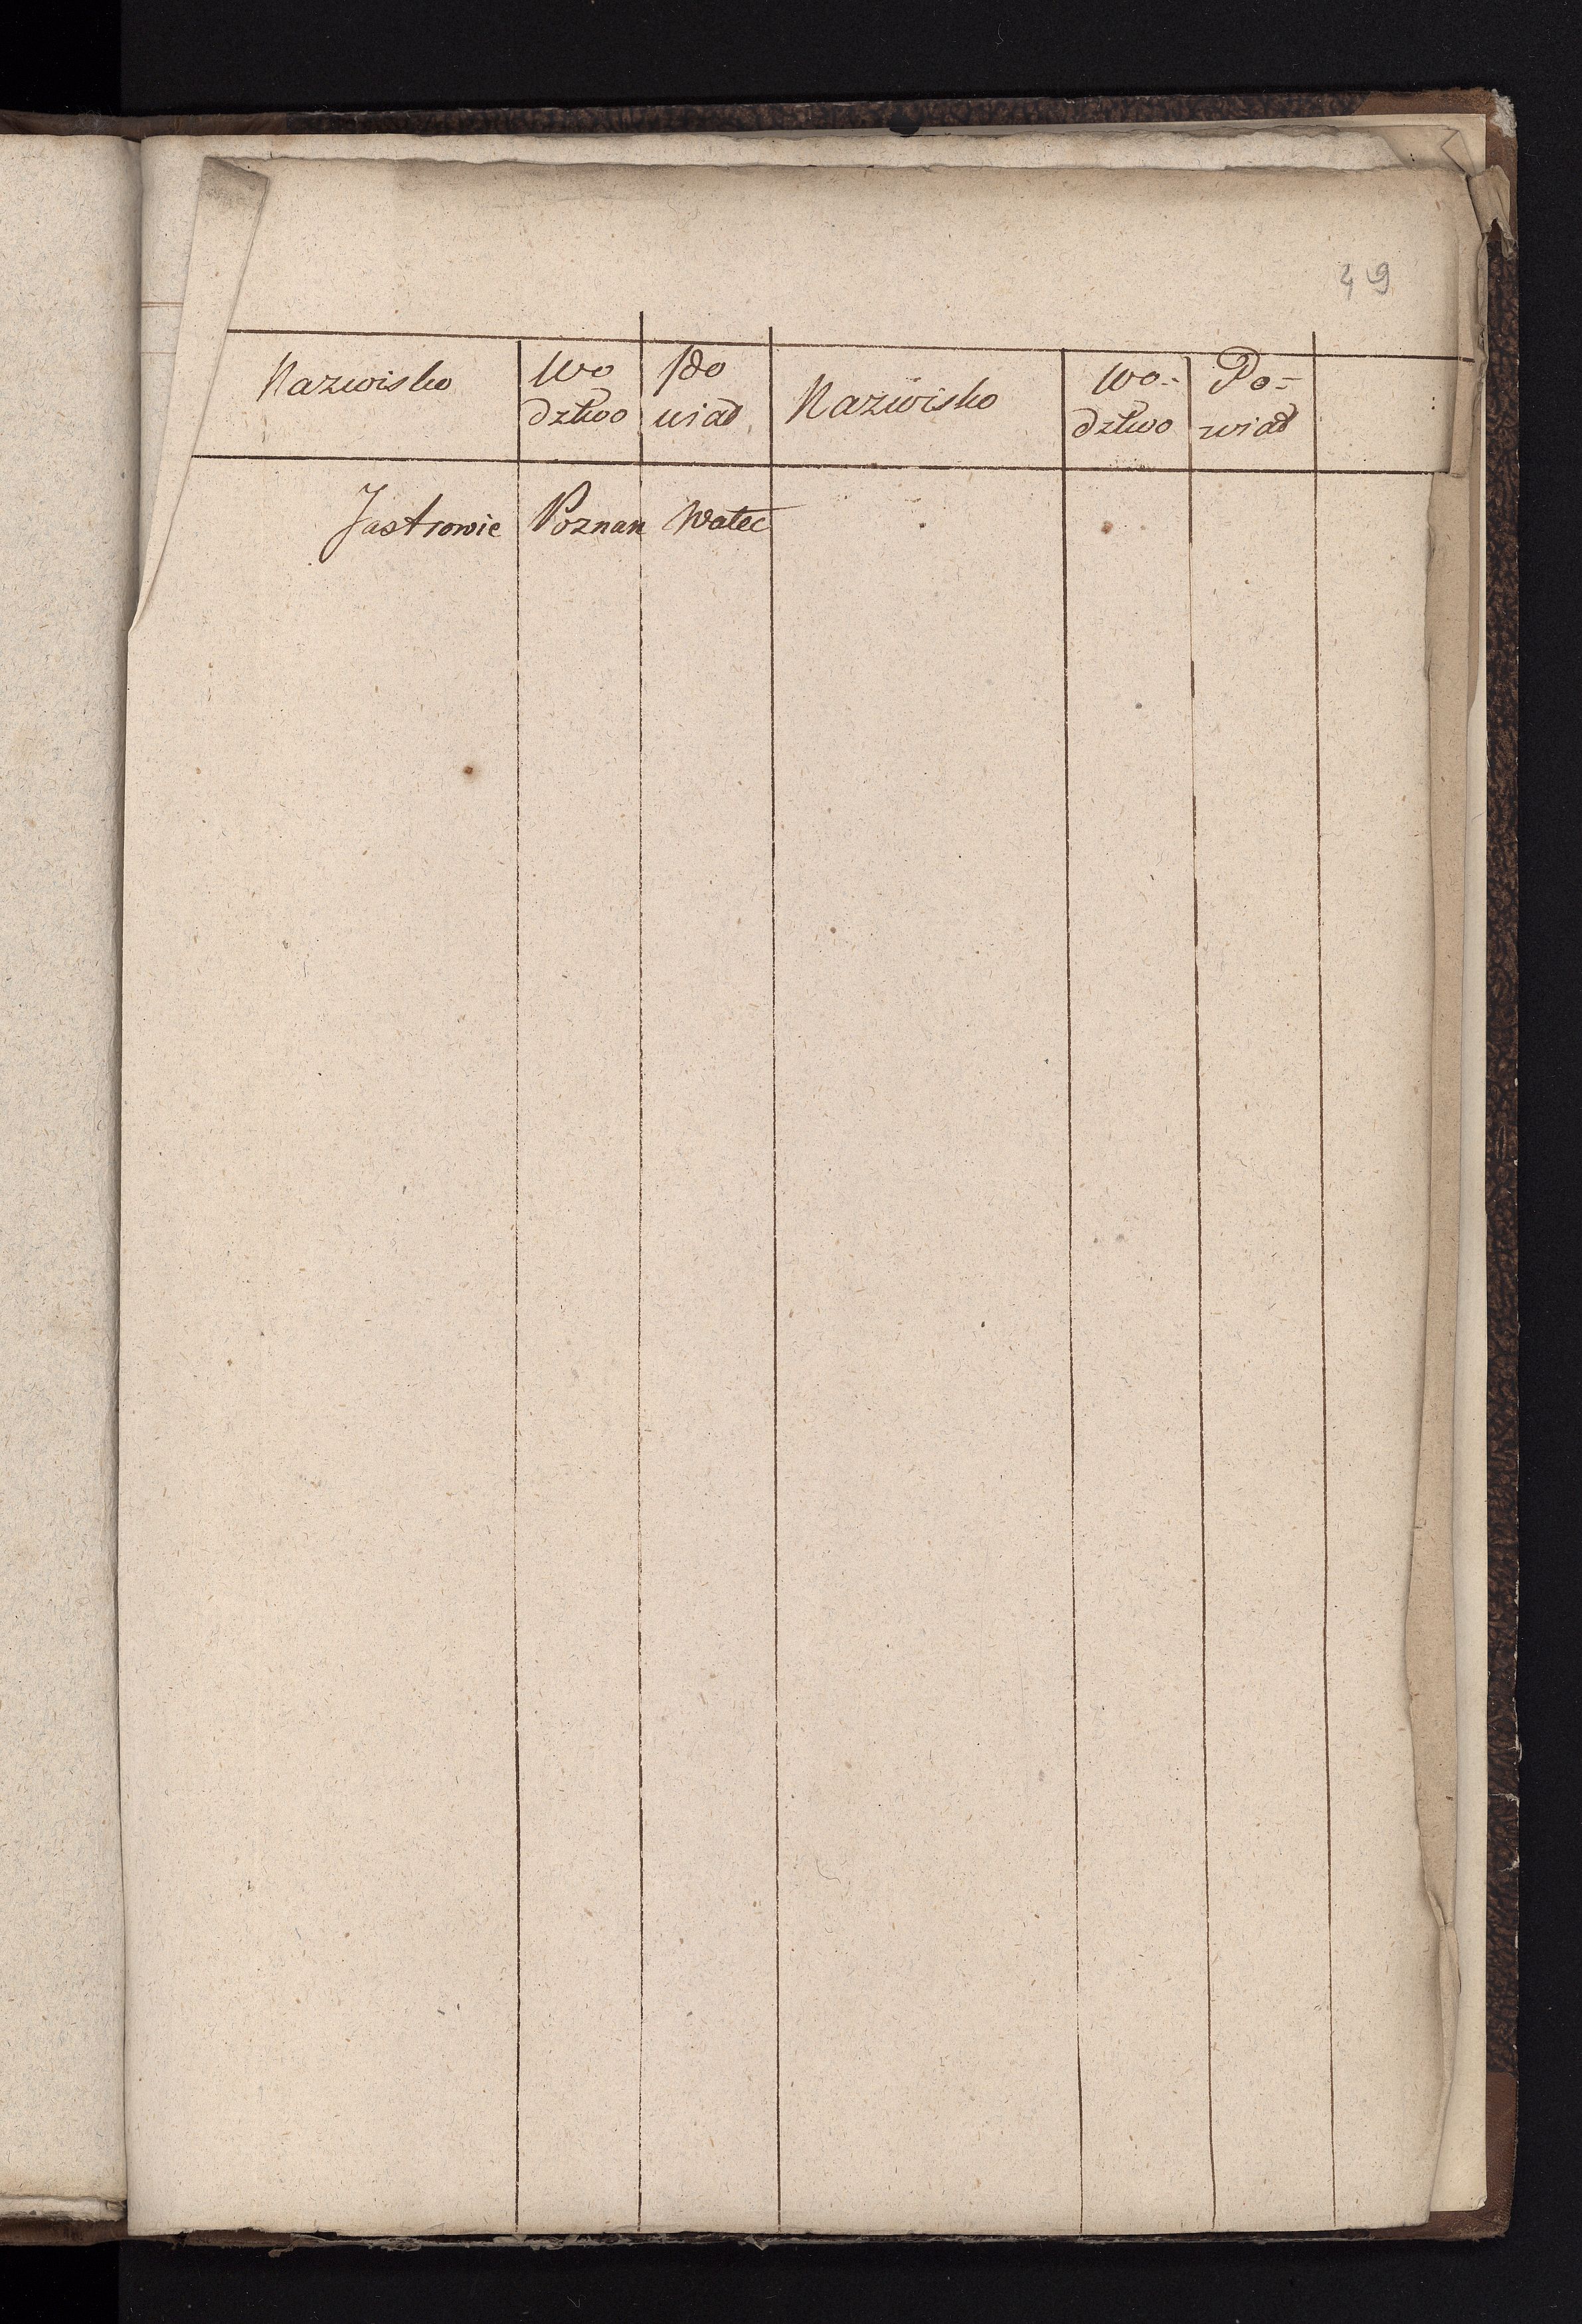 49
Nazwisko | Wo | Po | Nazwisko | Wo- | Po-
dztwo | wiad | dztwo | wiad
Jastrowie | Poznan | Wałec